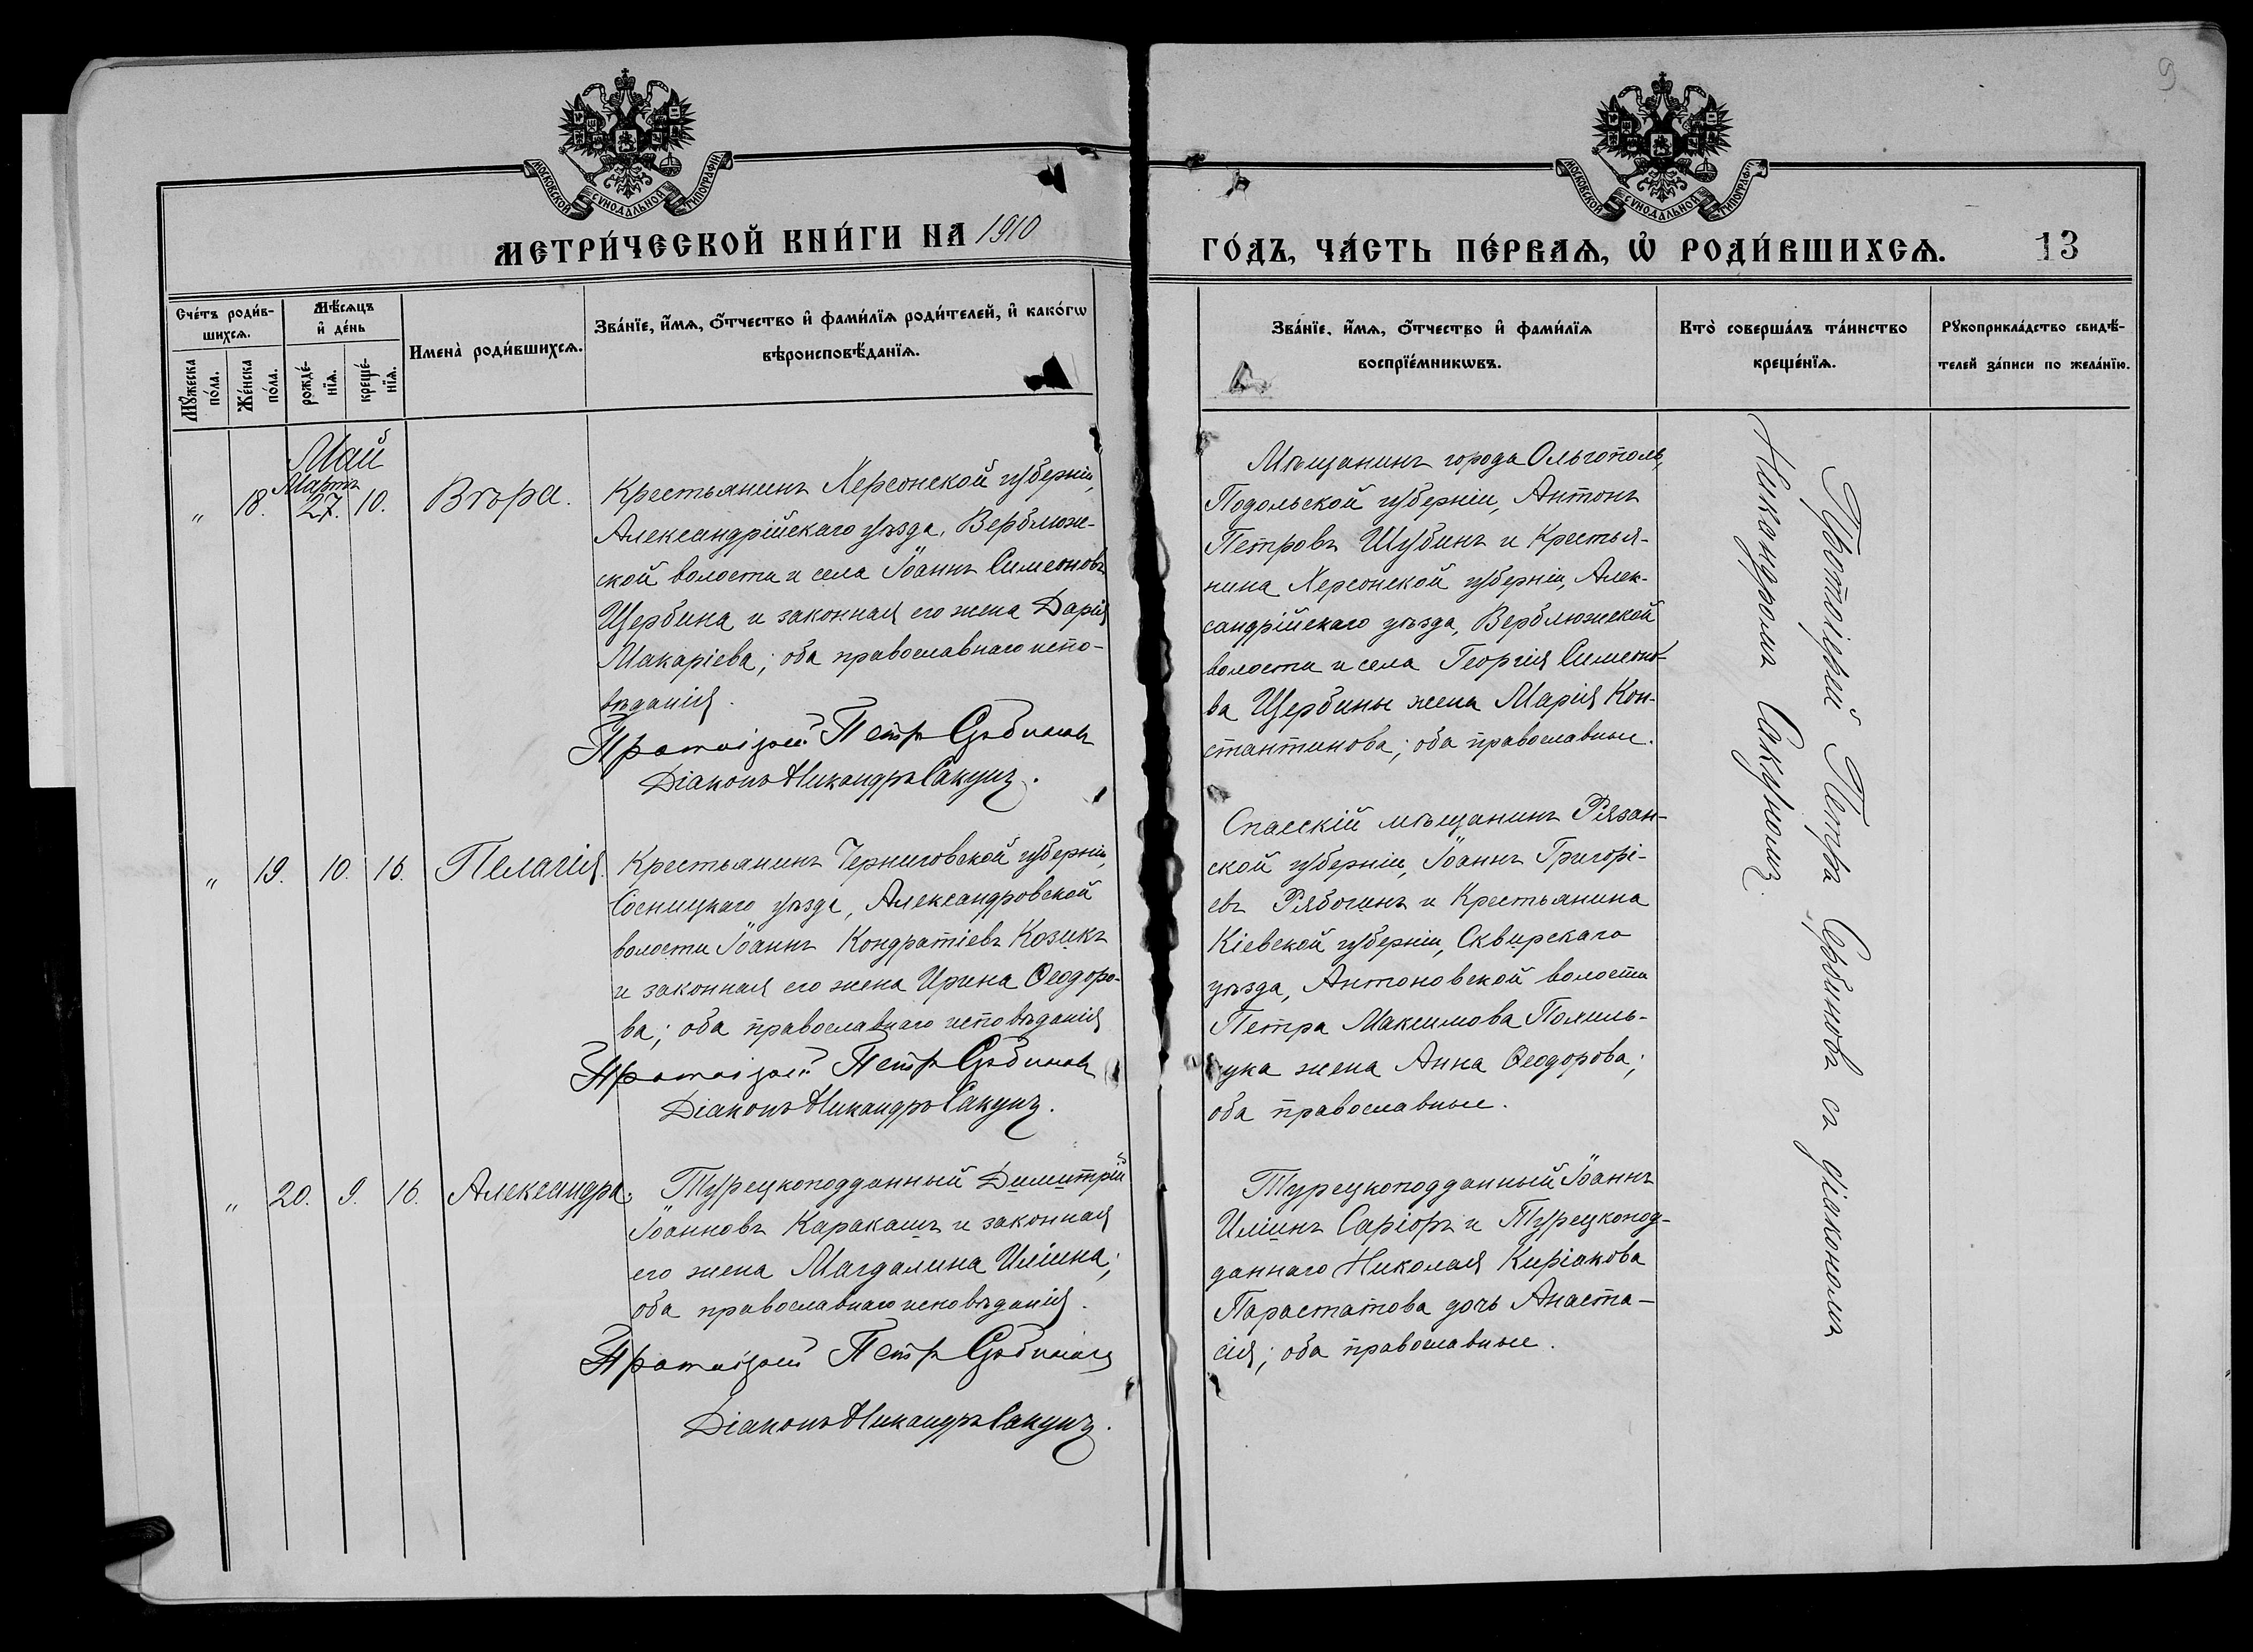 9
МОСКОВСКОЙ СѴНОДАЛЬНОЙ ТИПОГРАФІИ
МОСКОВСКОЙ СѴНОДАЛЬНОЙ ТИПОГРАФІИ
МЕТРИ́ЧЕСКОЙ КНИ́ГИ НА 1910
ГО́ДЪ, ЧА́СТЬ ПЕ́РВАѦ, Ѡ҆ РОДИ́ВШИХСѦ. 13
Сче́тъ роди́в-
шихсѧ.
Мꙋ́жеска по́ла.
Же́нска по́ла.
Мѣ́сѧцъ
и҆ де́нь
рожде́-
нїѧ.
креще́-
нїѧ.
Имена̀ роди́вшихсѧ.
Зва́нїе, и҆́мѧ, ѻ҆́тчество и҆ фами́лїѧ роди́телей, и҆ како́гѡ
вѣроисповѣ́данїѧ.
Зва́нїе, и҆́мѧ, ѻ҆́тчество и҆ фами́лїѧ
воспрїе́мникѡвъ.
Кто̀ соверша́лъ та́инство
креще́нїѧ.
Рꙋкоприкла́дство свидѣ́-
телей за́писи по жела́нїю.
Май
Мартъ
" 18. 27. 10. Вѣра.
Крестьянинъ Херсонской губерніи,
Александрійскаго уѣзда, Верблюж-
ской волости и села Іоаннъ Симеоновъ
Щербина и законная его жена Дарія
Макаріева; оба православнаго испо-
вѣданія.
Протоіерей Петръ Сербиновъ
Діаконъ Никандръ Сакунъ.
Мѣщанинъ города Ольгополь,
Подольской губерніи, Антонъ
Петровъ Шубинъ и Крестья-
нина Херсонской губерніи, Алек-
сандрійскаго уѣзда, Верблюжской
волости и села Георгія Симеоно-
ва Щербины жена Марія Кон-
стантинова; оба православные.
Протоіерей Петръ Сербиновъ съ діакономъ
Никандромъ Сакуномъ.
" 19. 10. 16. Пелагія.
Крестьянинъ Черниговской губерніи,
Сосницкаго уѣзда, Александровской
волости Іоаннъ Кондратіевъ Козикъ
и законная его жена Ирина Ѳеодоро-
ва; оба православнаго исповѣданія
Протоіерей Петръ Сербиновъ
Діаконъ Никандръ Сакунъ.
Спасскій мѣщанинъ Рязан-
ской губерніи, Іоаннъ Григорі-
евъ Рябогинъ и Крестьянина
Кіевской губерніи, Сквирскаго
уѣзда, Антоновской волости
Петра Максимова
жена Анна Ѳеодорова;
оба православные.
" 20. 9. 16. Александра.
Турецкоподданный Димитрій
Іоанновъ Каракашъ и законная
его жена Магдалина Иліина;
оба православнаго исповѣданія.
Протоіерей Петръ Сербиновъ
Діаконъ Никандръ Сакунъ.
Турецкоподданный Іоаннъ
Иліинъ Саріоръ и Турецкопод-
даннаго Николая Киріакова
Парастатова дочь Анаста-
сія; оба православные.